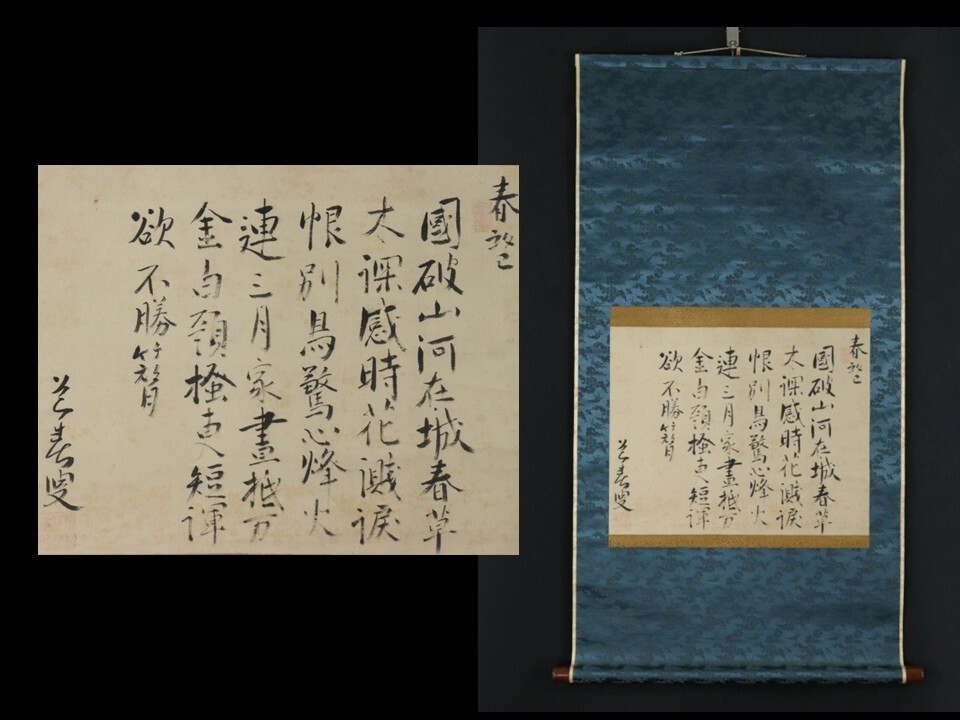 春望
國破山河在城春草
木深感時花濺淚
恨別鳥驚心烽火
連三月家書抵万
金白頭搔更短渾
欲不勝簪
道春叟
春望
國破山河在城春草
木深感時花濺淚
恨別鳥驚心烽火
連三月家書抵万
金白頭搔更短渾
欲不勝簪
道春叟